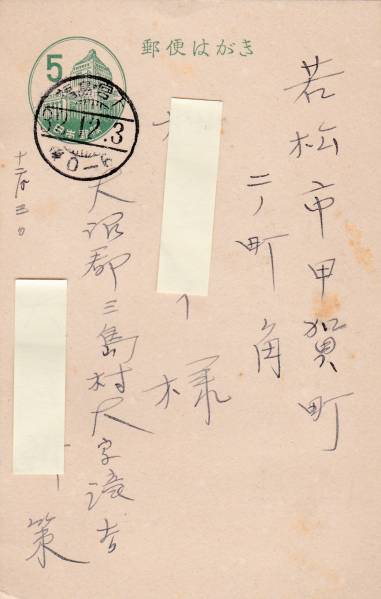 郵便はがき
5
12.3
日本郵便
若松市甲賀町
二ノ町角
様
十二月三日
大沼郡三島村大字滝谷
策